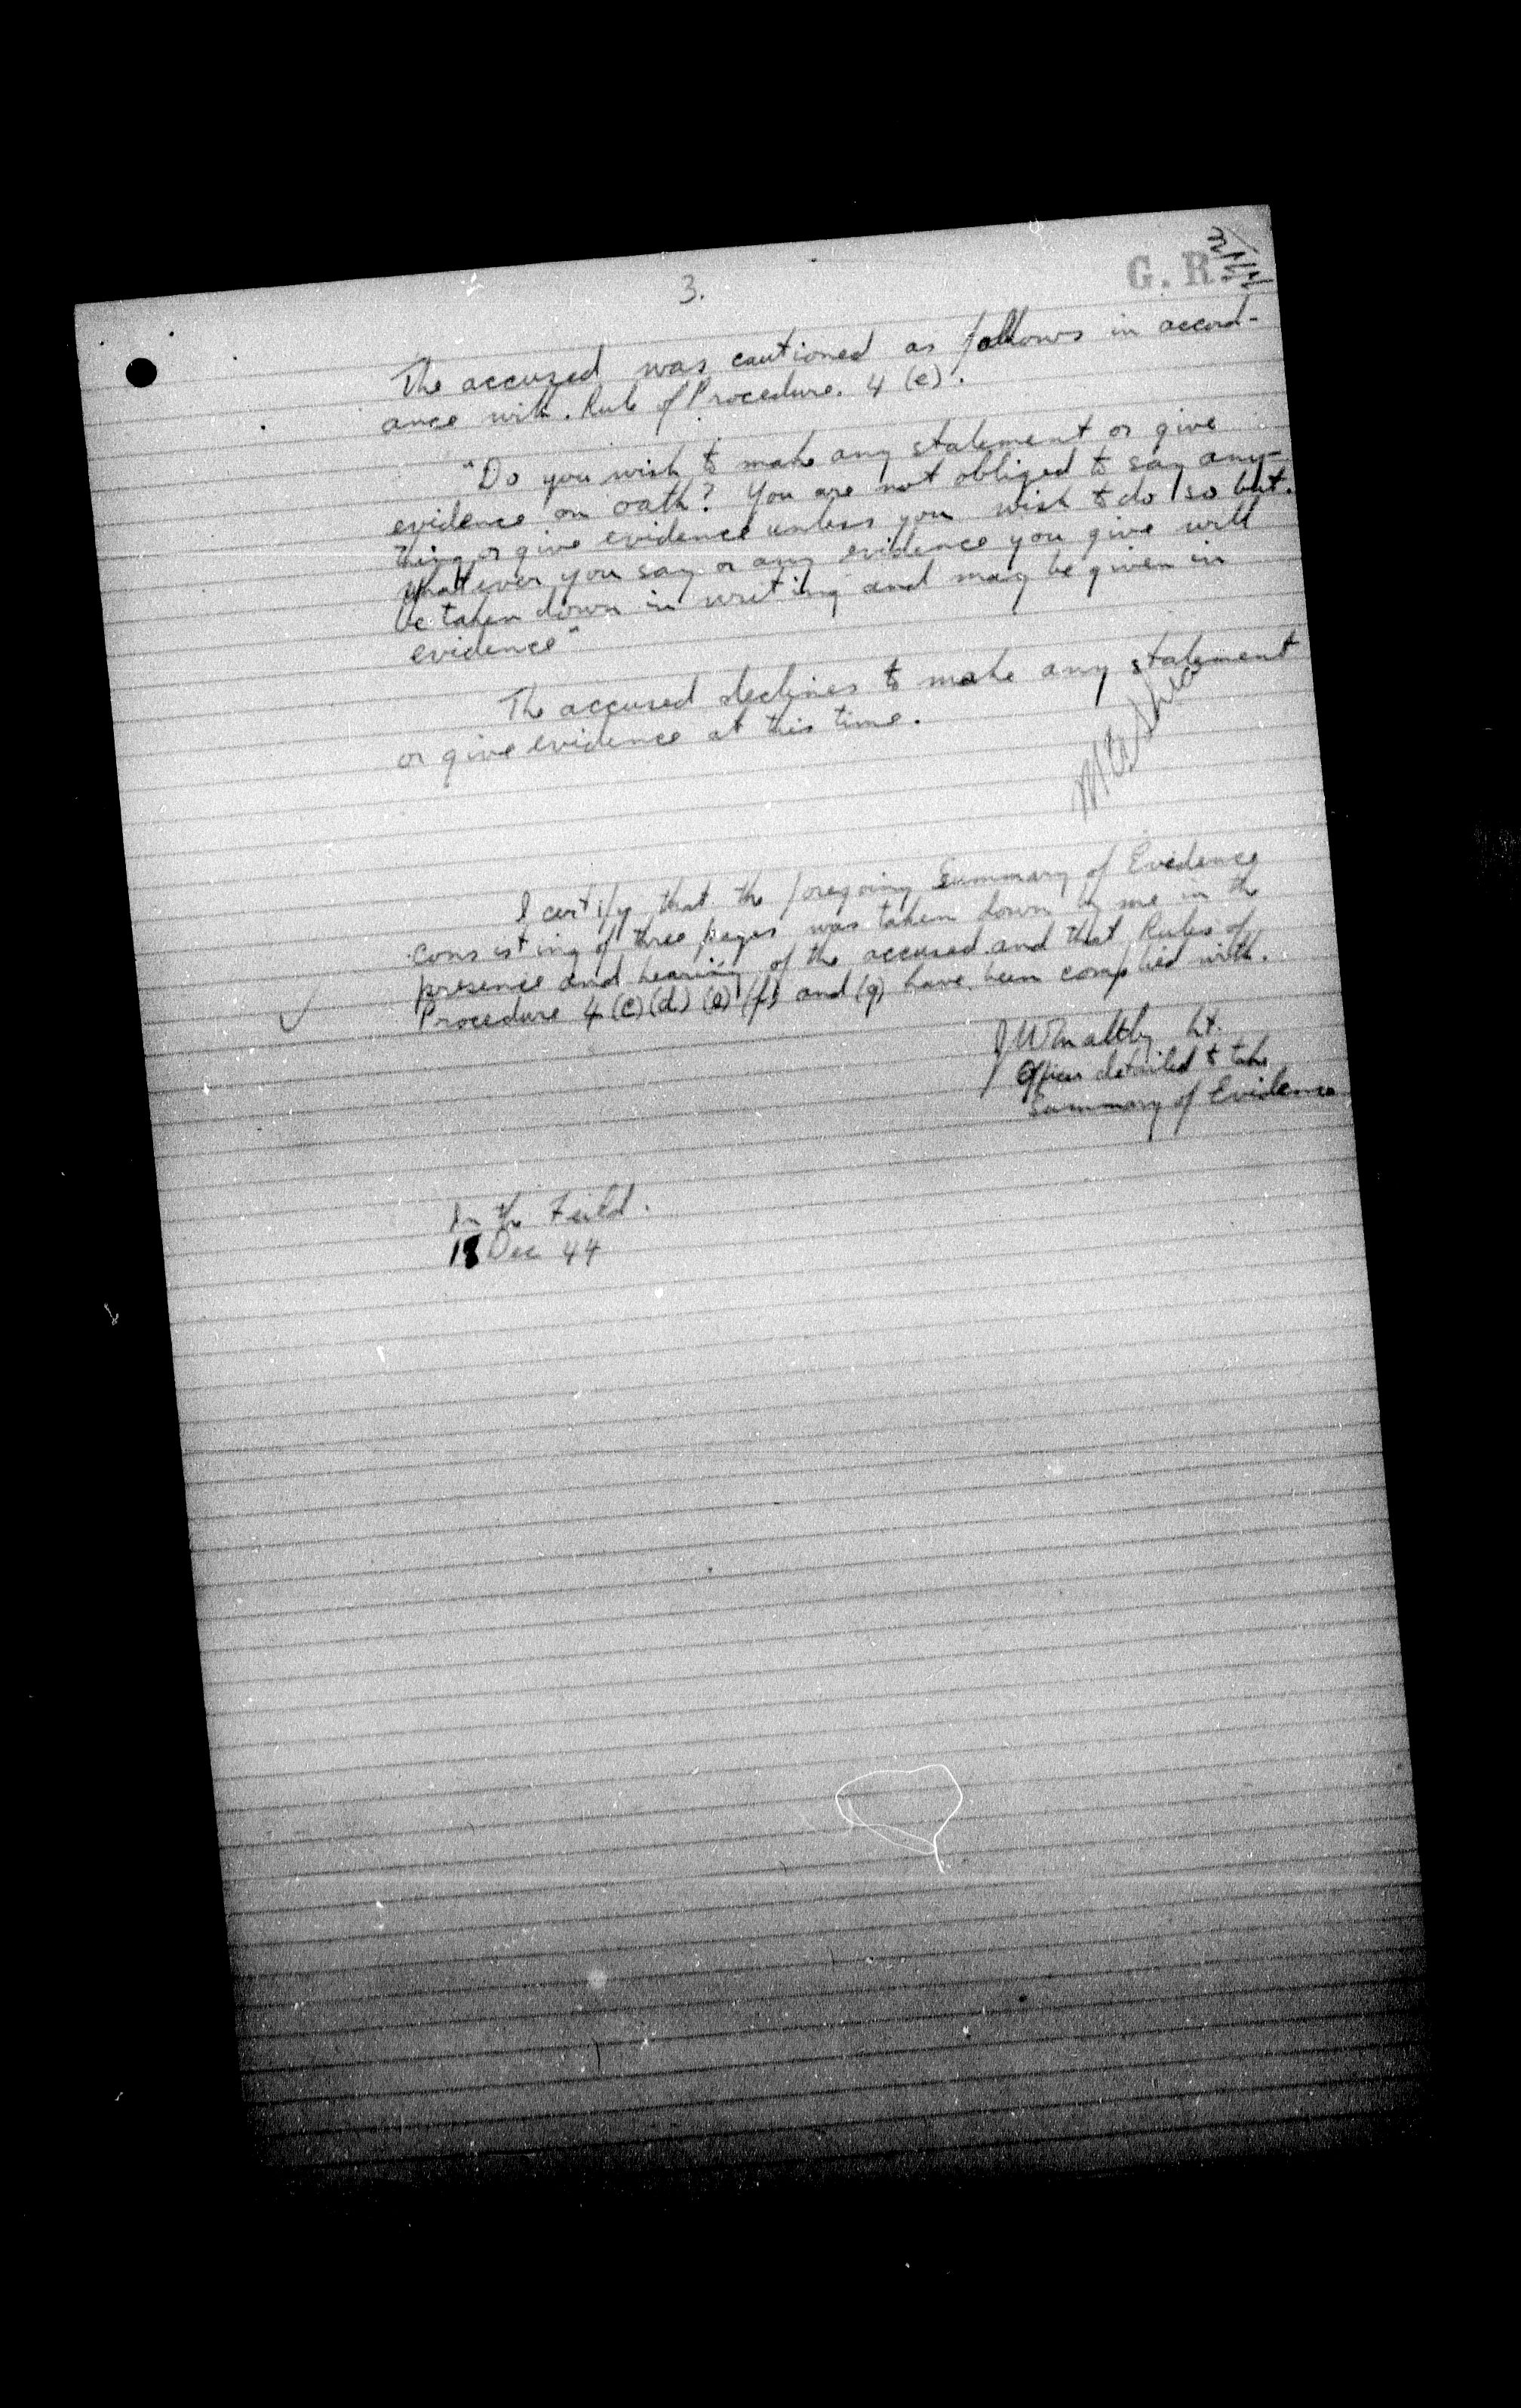 3.
G. R.
The accused was cautioned as follows in accord-
ance with. Rule of Procedure. 4 (e).
"Do you wish to make any statement or give
evidence on oath? You are not obliged to say any-
thing or give evidence unless you wish to do so but.
whatever you say or any evidence you give will
be taken down in writing and may be given in
evidence"
The accused declines to make any statement
or give evidence at this time.
I certify that the foregoing Summary of Evidence
consisting of three pages was taken down by me in the
presence and hearing of the accused and that Rules of
Procedure 4 (c) (d) (e) (f) and (g) have been complied with.
JW Maltby Lt.
Officer detailed to take
Summary of Evidence
In the Feild.
18 Dec 44